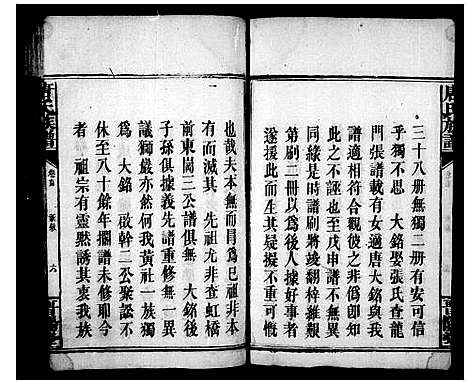 三十八册無獨二册有安可信
乎獨不思　大銘娶張氏查龍
門張譜載有女適唐大銘與我
譜適相符合觀彼之非僞即知
此之不誣也至戊申譜不無明
同緣是時譜刷將竣翻梓維艱
第刷二冊以爲後人據好事者
遂援此而生其疑擬不重可慨
也哉夫本無而冒爲已祖非本
有而滅其　先祖尤非查虹橋
前東崗三公譜俱無　大銘後
子孫俱據義先譜重修無一異
議獨嚴亦然何我黃社一族獨
爲　大銘　啟幹二公聚訟不
休至八十餘年擱譜未修耶今
者　祖宗有靈默誘其衷我族
唐氏族譜
卷首
六